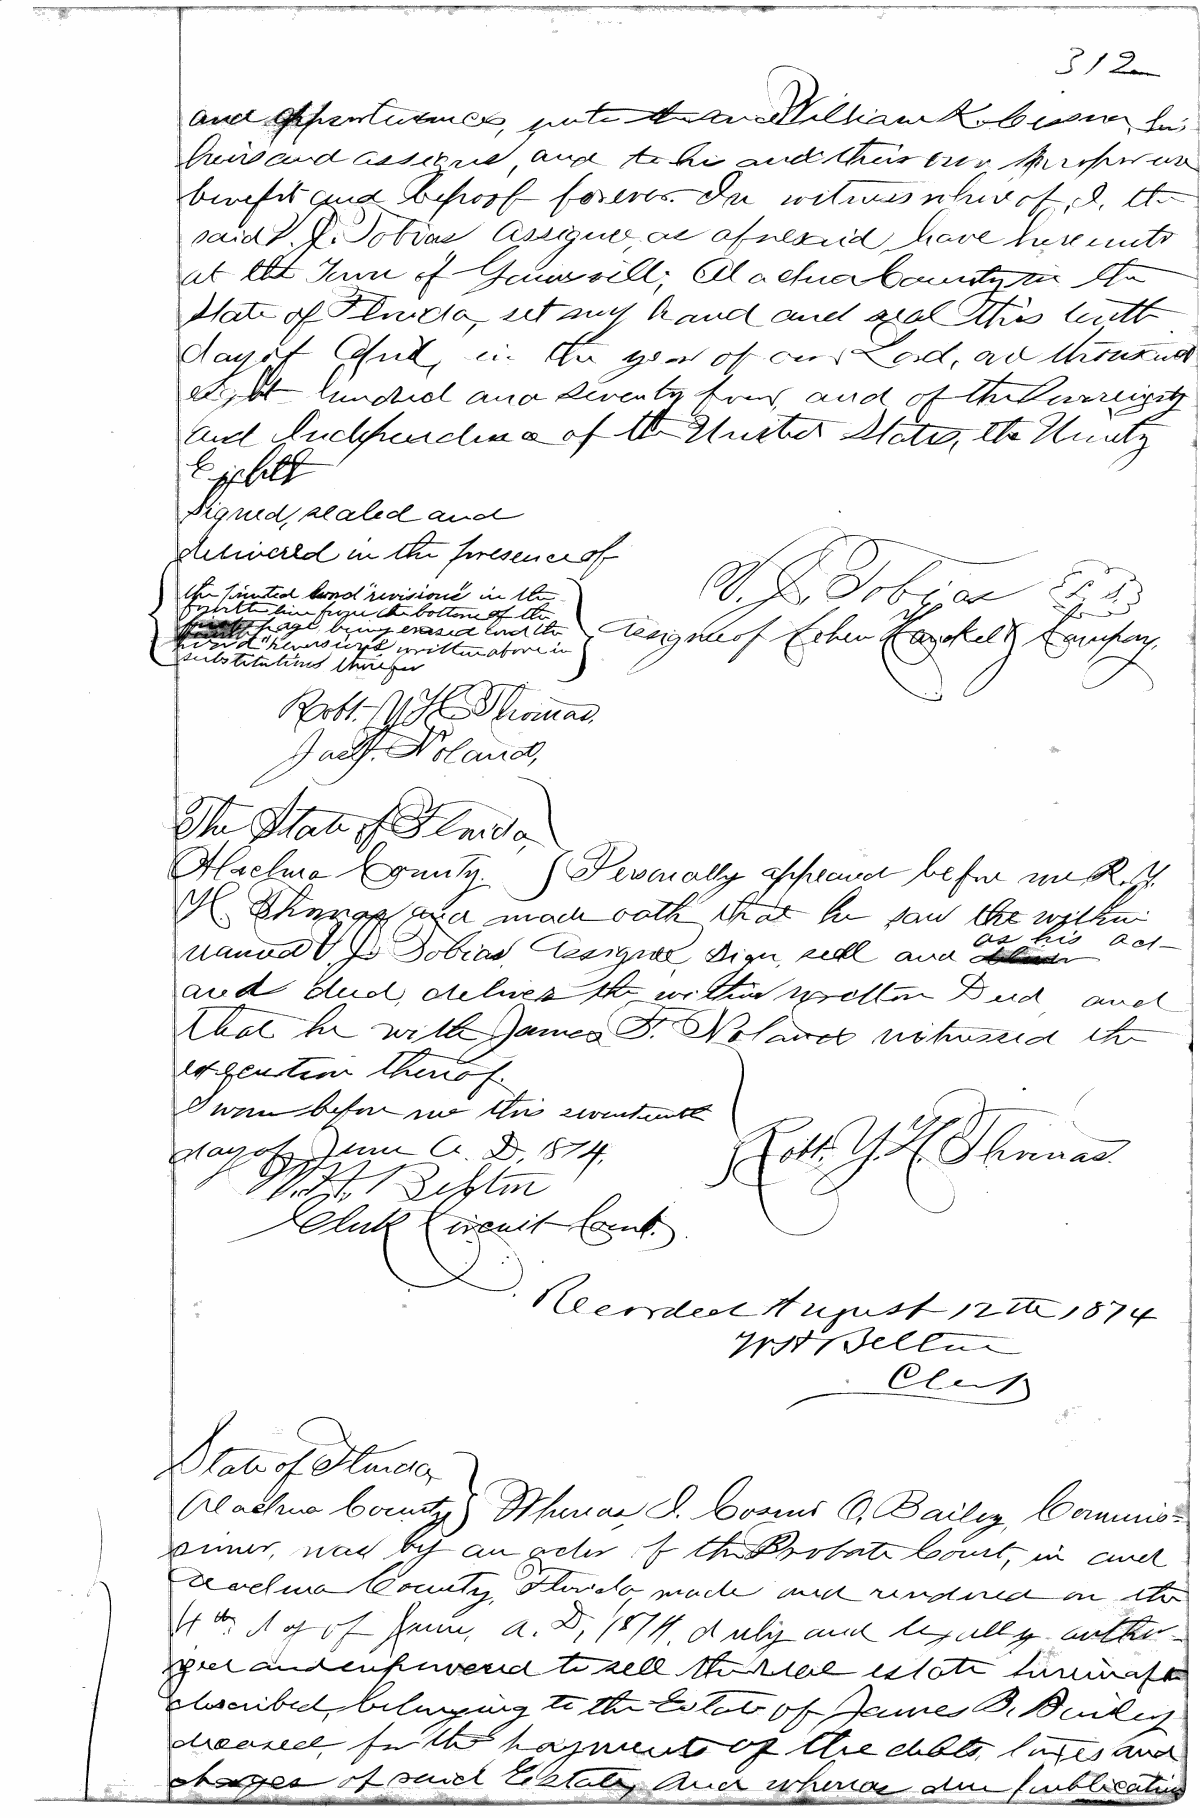 312
and appurtenances, unto the said William K. Cessna, his
heirs and assigns, and to his and their own proper use
benefit and behoof forever. In witness whereof, I, the
said V. J. Tobias Assignee, as aforesaid, have hereunto
at the Town of Gainesville, Alachua County in the
State of Florida, set my hand and seal this tenth
day of April, in the year of our Lord, one thousand
eight hundred and seventy four, and of the Sovereignty
and Independence of the United States, the Ninety
Eighth
Signed, sealed and
delivered in the presence of
the printed word "revisions" in the
fourth line from the bottom of the
page being erased and the
word "reversions" written above in
substitutions therefor
V. J. Tobias L.S.
Assignee of Cohen Hanckel & Company,
Robt. Y. H. Thomas,
Jas. F. Noland,
The State of Florida,
Alachua County. Personally appeared before me R. Y.
H. Thomas and made oath that he saw the within
named V. J. Tobias, Assignee, sign, seal and as his act
and deed, deliver the within written Deed, and
that he with James F. Noland witnessed the
execution thereof.
Sworn before me this seventeenth
day of June A. D. 1874.
Robt. Y. H. Thomas.
W. H. Belton
Clerk Circuit Court.
Recorded August 12th 1874
W H Belton
Clerk
State of Florida,
Alachua County Whereas, I. Cosmo O. Bailey, Commis-
sioner, was by an order of the Probate Court, in and
Alachua County, Florida, made and rendered on the
4th day of June, A. D, 1874, duly and legally autho-
ized and empowered to sell the real estate hereinafter
described, belonging to the Estate of James B. Bailey
deceased, for the payment of the debts, taxes and
charges of said Estate, And whereas due publication